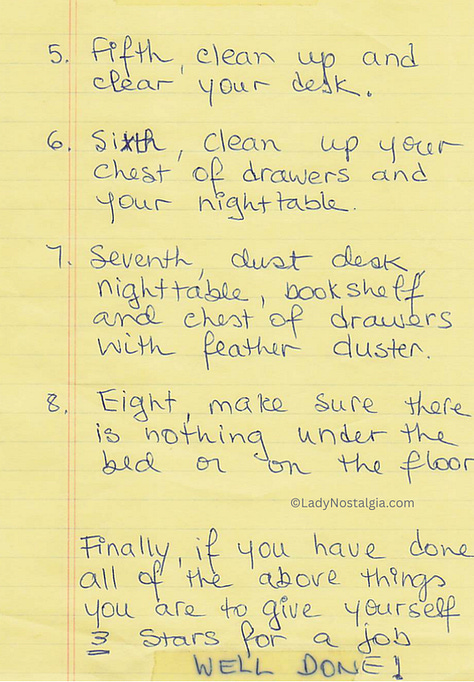 5. Fifth, clean up and
clear your desk.
6. Sixth, clean up your
chest of drawers and
your nighttable.
7. Seventh, dust desk,
nighttable, bookshelf
and chest of drawers
with feather duster.
8. Eight, make sure there
is nothing under the
bed or on the floor
©LadyNostalgia.com
Finally, if you have done
all of the above things
you are to give yourself
3 stars for a job
WELL DONE!